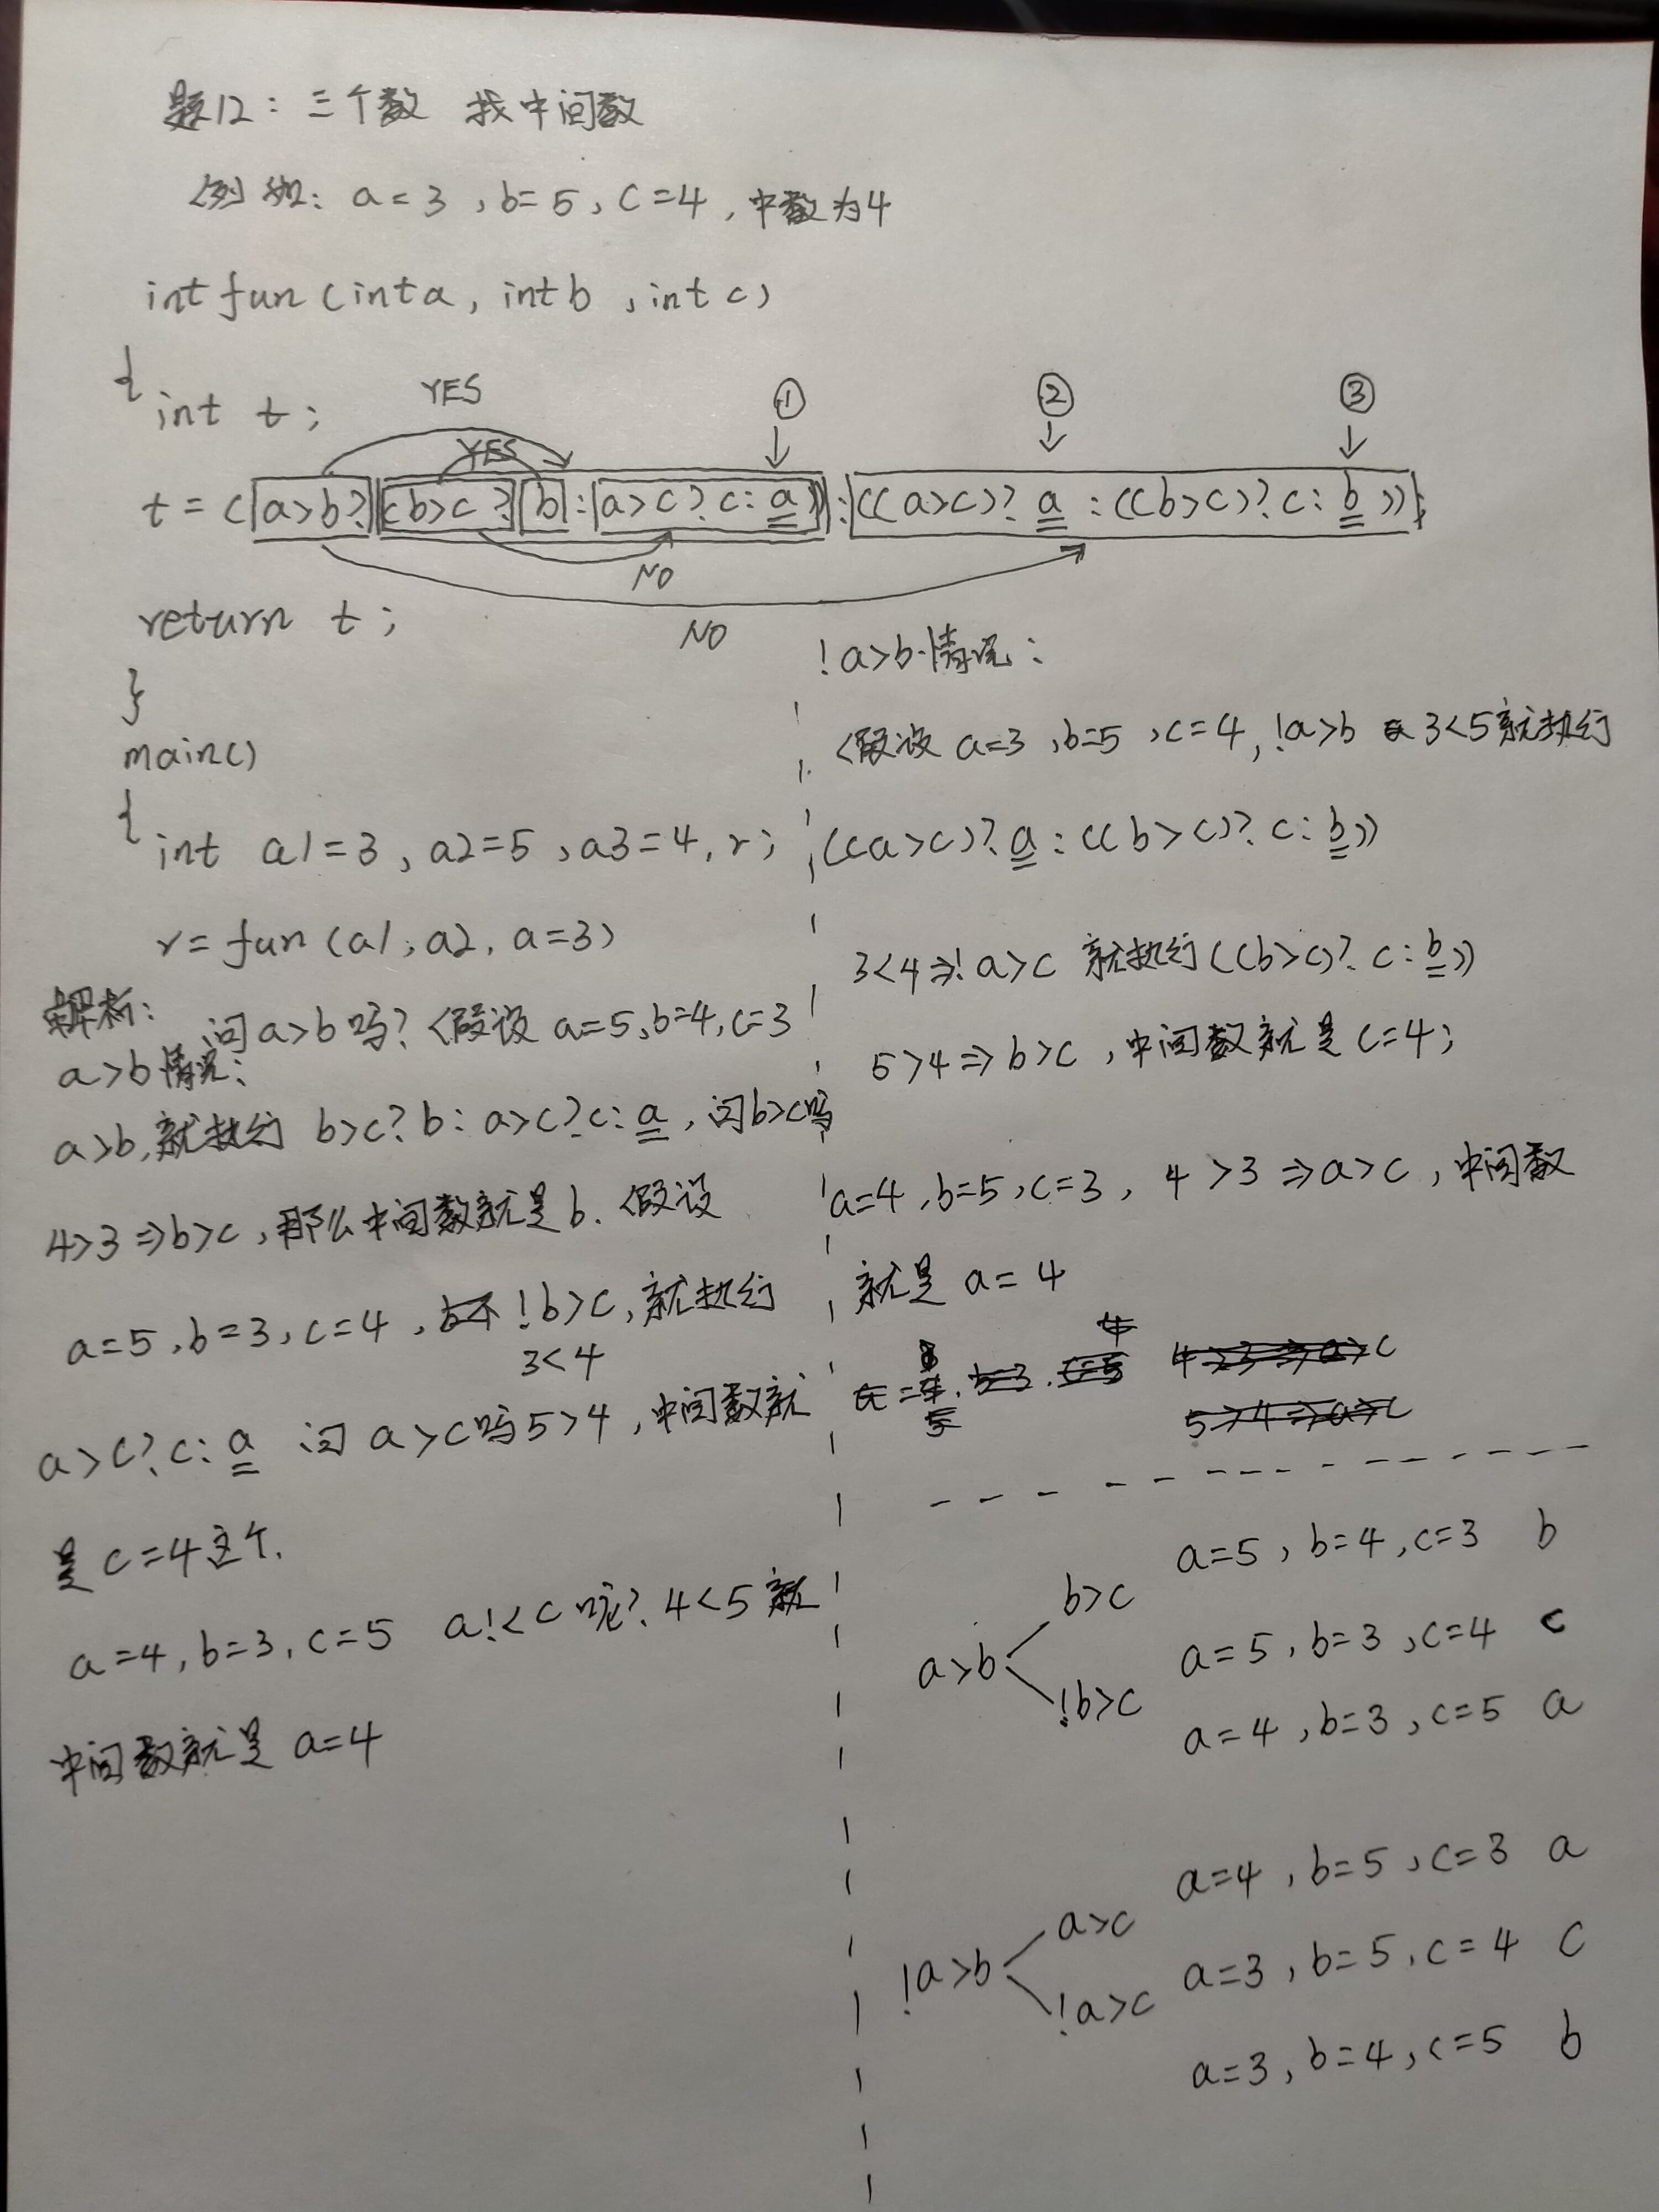 题12：三个数 找中间数
例如：a=3，b=5，c=4，中数为4
int fun(int a, int b, int c)
{
int t;
YES
① ② ③
YES
t=(a>b?(b>c?b:(a>c?c:a)):((a>c)?a:((b>c)?c:b));
NO
NO
return t;
}
main()
{
int a1=3, a2=5, a3=4, r;
r=fun(a1, a2, a=3)
解析：
问a>b吗？假设 a=5,b=4,c=3
a>b情况：
a>b,就执行 b>c?b:a>c?c:a，问b>c吗
4>3⇒b>c，那么中间数就是b. 假设
a=5,b=3,c=4, !b>c,就执行
3<4
a>c?c:a 问 a>c吗5>4，中间数就
是c=4这个.
a=4,b=3,c=5 a!<c呢？4<5就
中间数就是 a=4
!a>b情况：
假设 a=3,b=5,c=4,!a>b 3<5就执行
((a>c)?a:((b>c)?c:b))
3<4⇒!a>c 就执行((b>c)?c:b))
5>4⇒b>c，中间数就是c=4；
a=4,b=5,c=3, 4>3⇒a>c，中间数
就是 a=4
4>3⇒a>c
5>4⇒a>c
a=5, b=4, c=3 b
b>c
a>b
a=5, b=3, c=4 c
!b>c
a=4, b=3, c=5 a
a=4, b=5, c=3 a
a>c
!a>b
a=3, b=5, c=4 c
!a>c
a=3, b=4, c=5 b